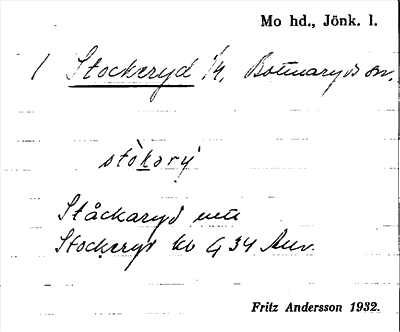 Mo hd., Jönk. l.
1 Stockeryd 1/4, Bottnaryds sn.
stòkary
Ståckaryd
Stockeryd kb G 34 Anv.
Fritz Andersson 1932.